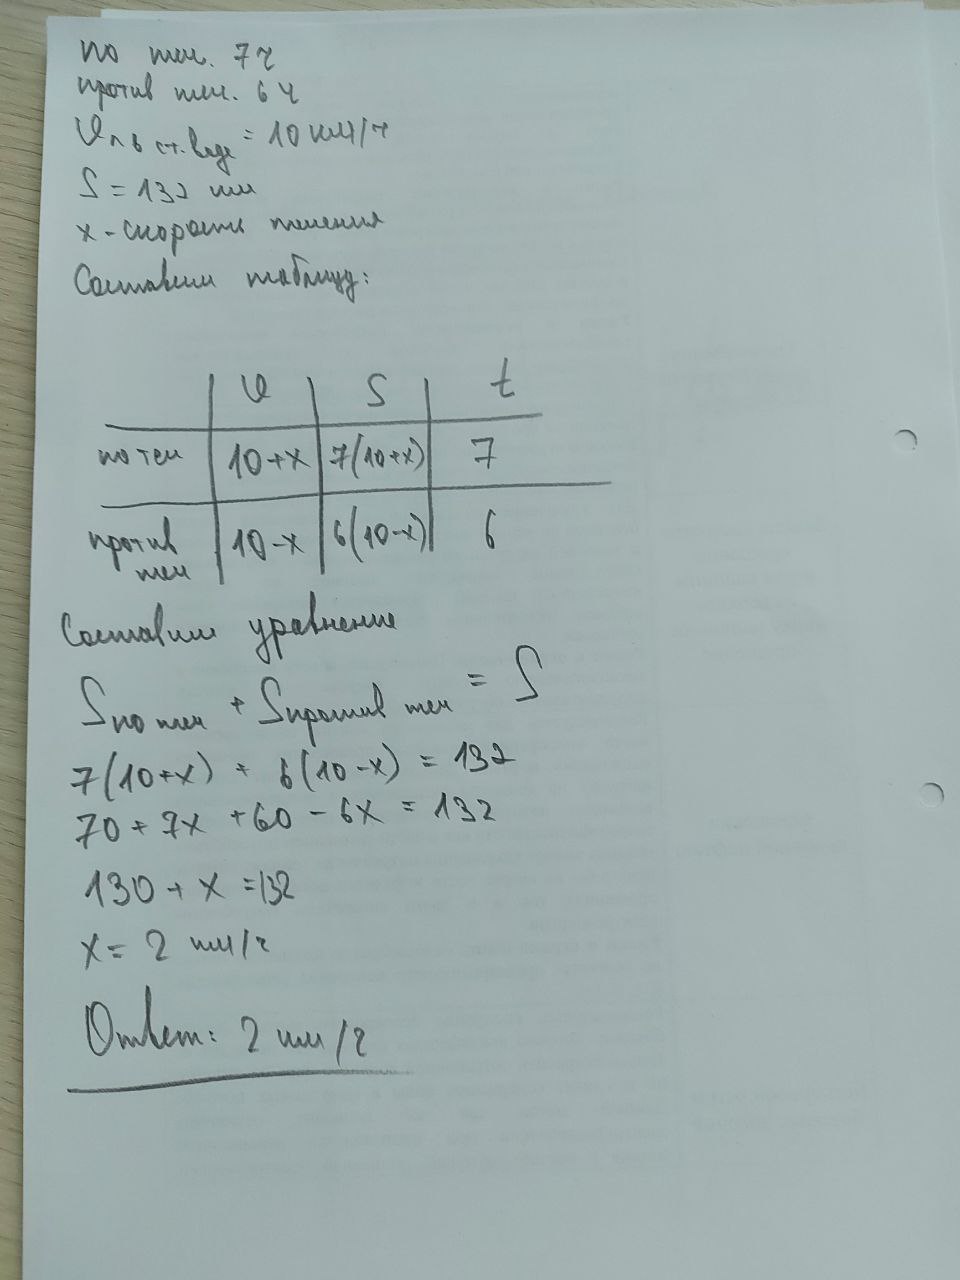 по теч. 7ч
против теч. 6 ч
υл в ст. воде = 10 км/ч
S = 132 км
x - скорость течения
Составим таблицу:
υ S t
по теч 10+x 7(10+x) 7
против теч 10-x 6(10-x) 6
Составим уравнение
Sпо теч + Sпротив теч = S
7(10+x) + 6(10-x) = 132
70 + 7x + 60 - 6x = 132
130 + x = 132
x = 2 км/ч
Ответ: 2 км/ч